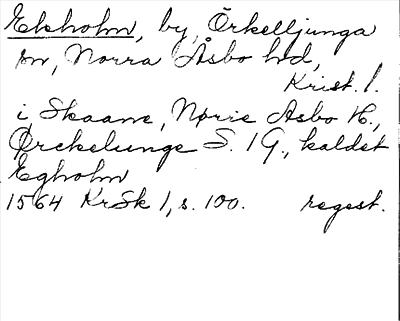 Ekholm, by, Örkelljunga
sn, Norra Åsbo hd,
Krist. l.
i Skaane, Nørre Asbo H.,
Ørckelunge S. 1 G., kaldet
Egholm
1564 KrSk 1, s. 100. regest.